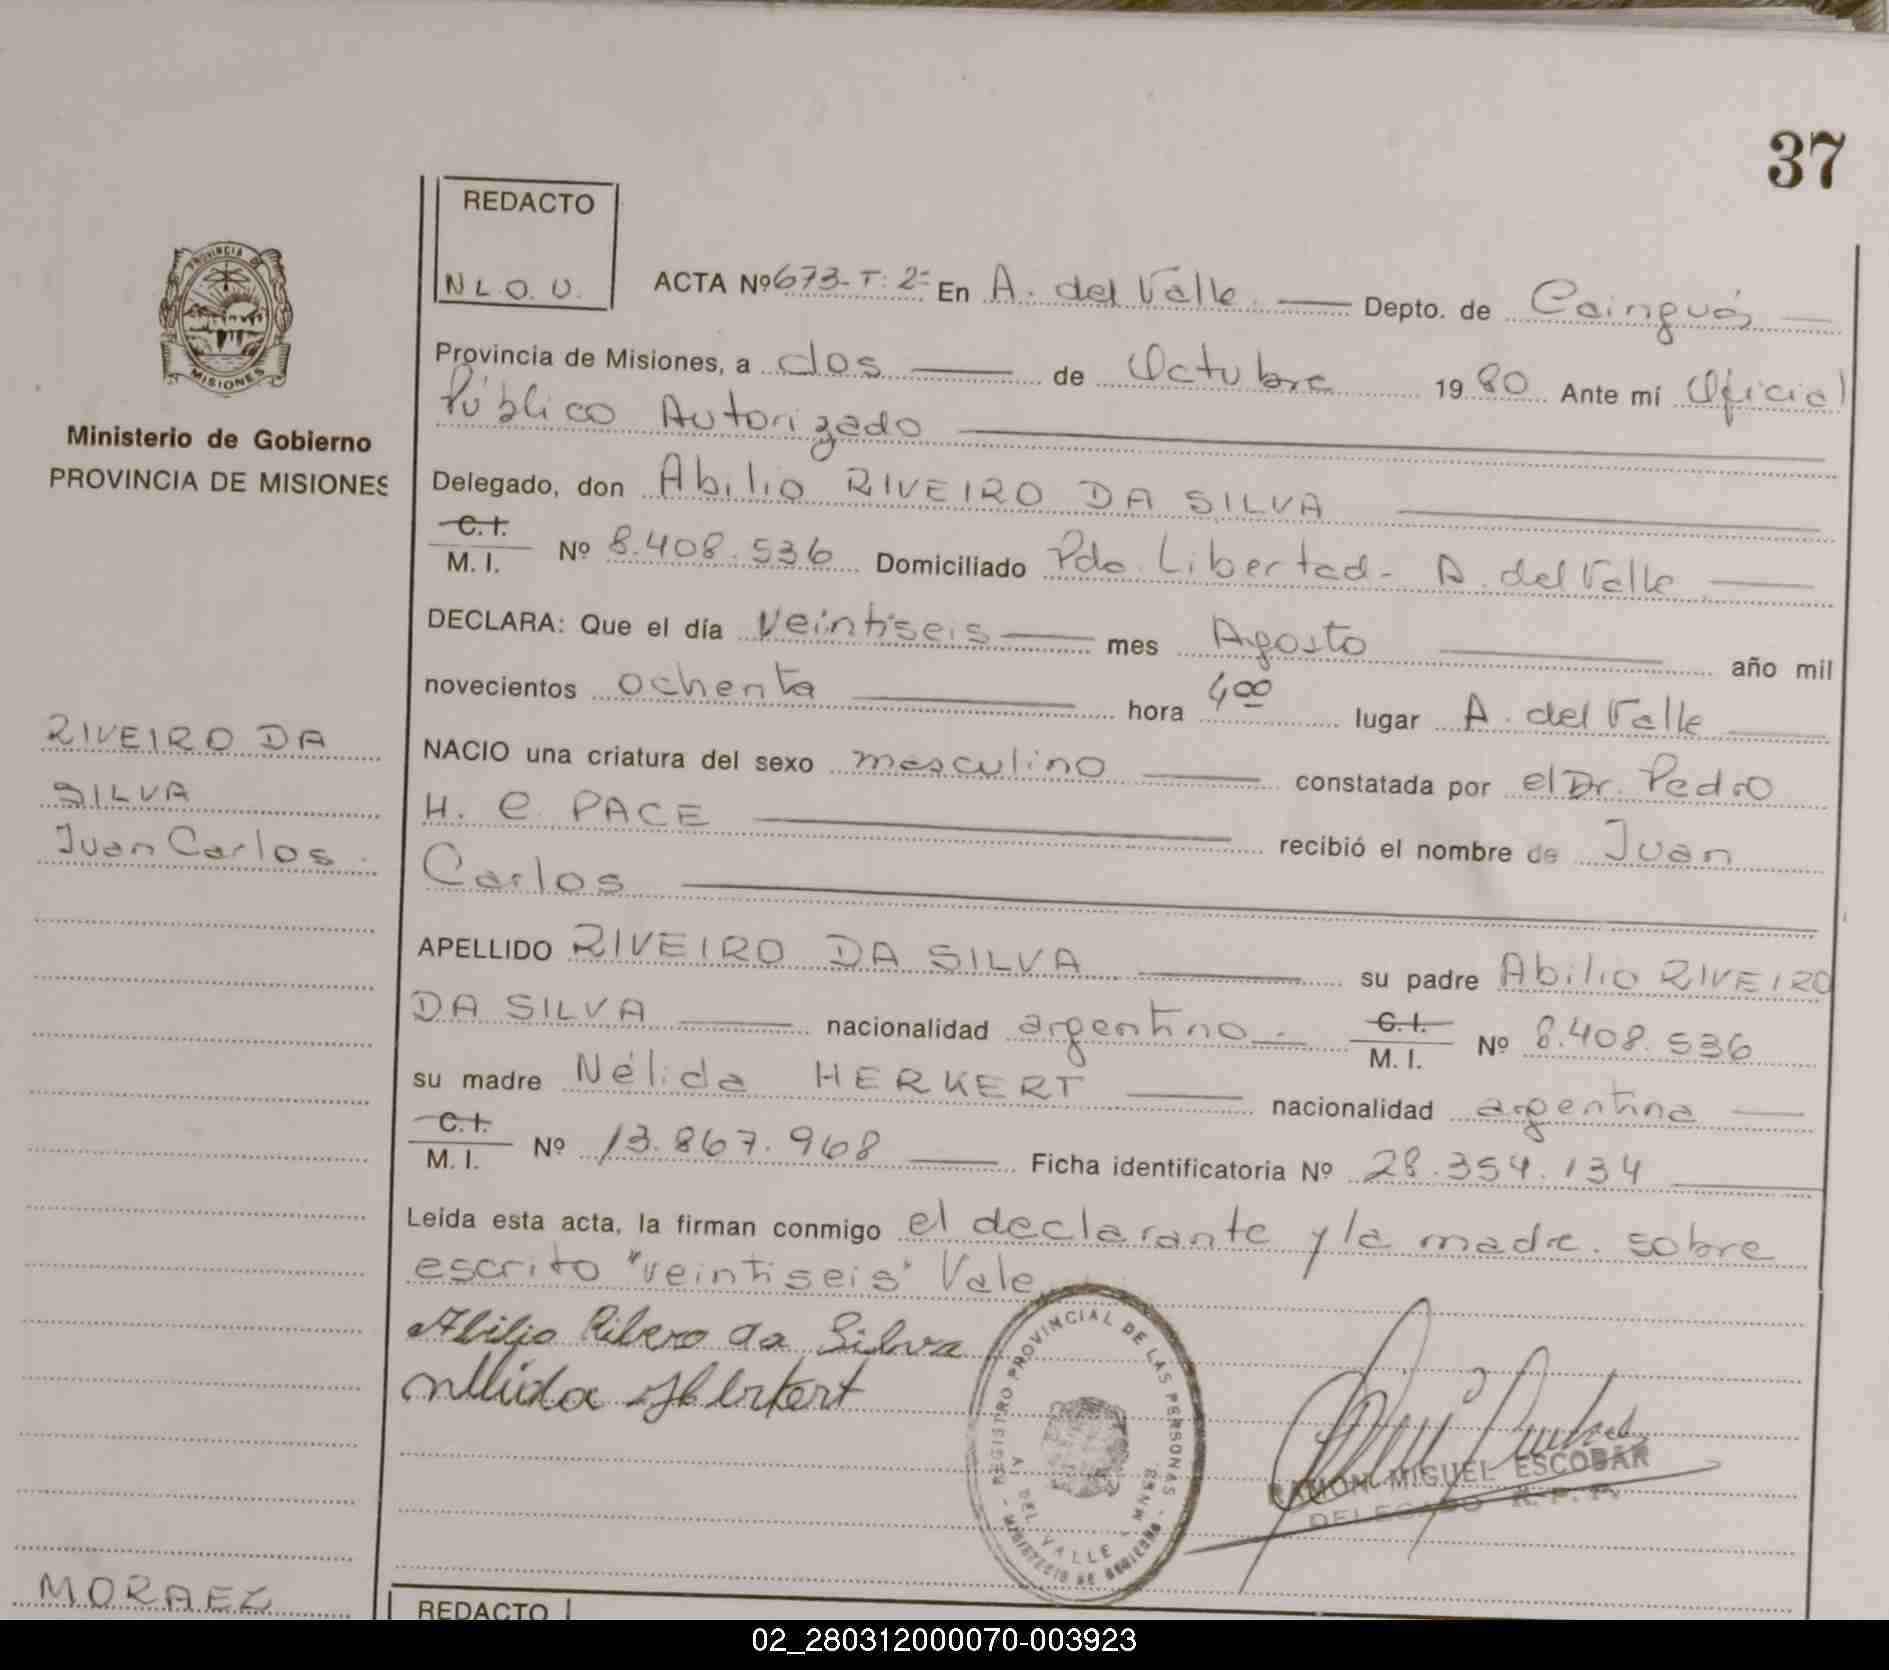 37
REDACTO
N L O. U.
ACTA Nº 673-T: 2ª En A. del Valle Depto. de Cainguás
Provincia de Misiones, a dos de Octubre 1980 Ante mí Oficial
Público Autorizado
Delegado, don Abilio RIVEIRO DA SILVA
C.I.
M. I. Nº 8.408.536 Domiciliado Pdo. Libertad - A. del Valle
DECLARA: Que el día veintiseis mes Agosto año mil
novecientos ochenta hora 4 00 lugar A. del Valle
NACIO una criatura del sexo masculino constatada por el Dr. Pedro
H. C. PACE recibió el nombre de Juan
Carlos
APELLIDO RIVEIRO DA SILVA su padre Abilio RIVEIRO
DA SILVA nacionalidad argentino C.I.
M. I. Nº 8.408.536
su madre Nélida HERKERT nacionalidad argentina
C.I.
M. I. Nº 13.867.968 Ficha identificatoria Nº 28.354.134
Leída esta acta, la firman conmigo el declarante y la madre. sobre
escrito "veintiseis" Vale
Abilio Ribero da Silva
Nélida Herkert
REGISTRO PROVINCIAL DE LAS PERSONAS
A. DEL VALLE
MINISTERIO DE GOBIERNO
RAMON MIGUEL ESCOBAR
DELEGADO R. P. P.
PROVINCIA
MISIONES
Ministerio de Gobierno
PROVINCIA DE MISIONES
RIVEIRO DA
SILVA
Juan Carlos
MORAEZ
REDACTO
02_280312000070-003923